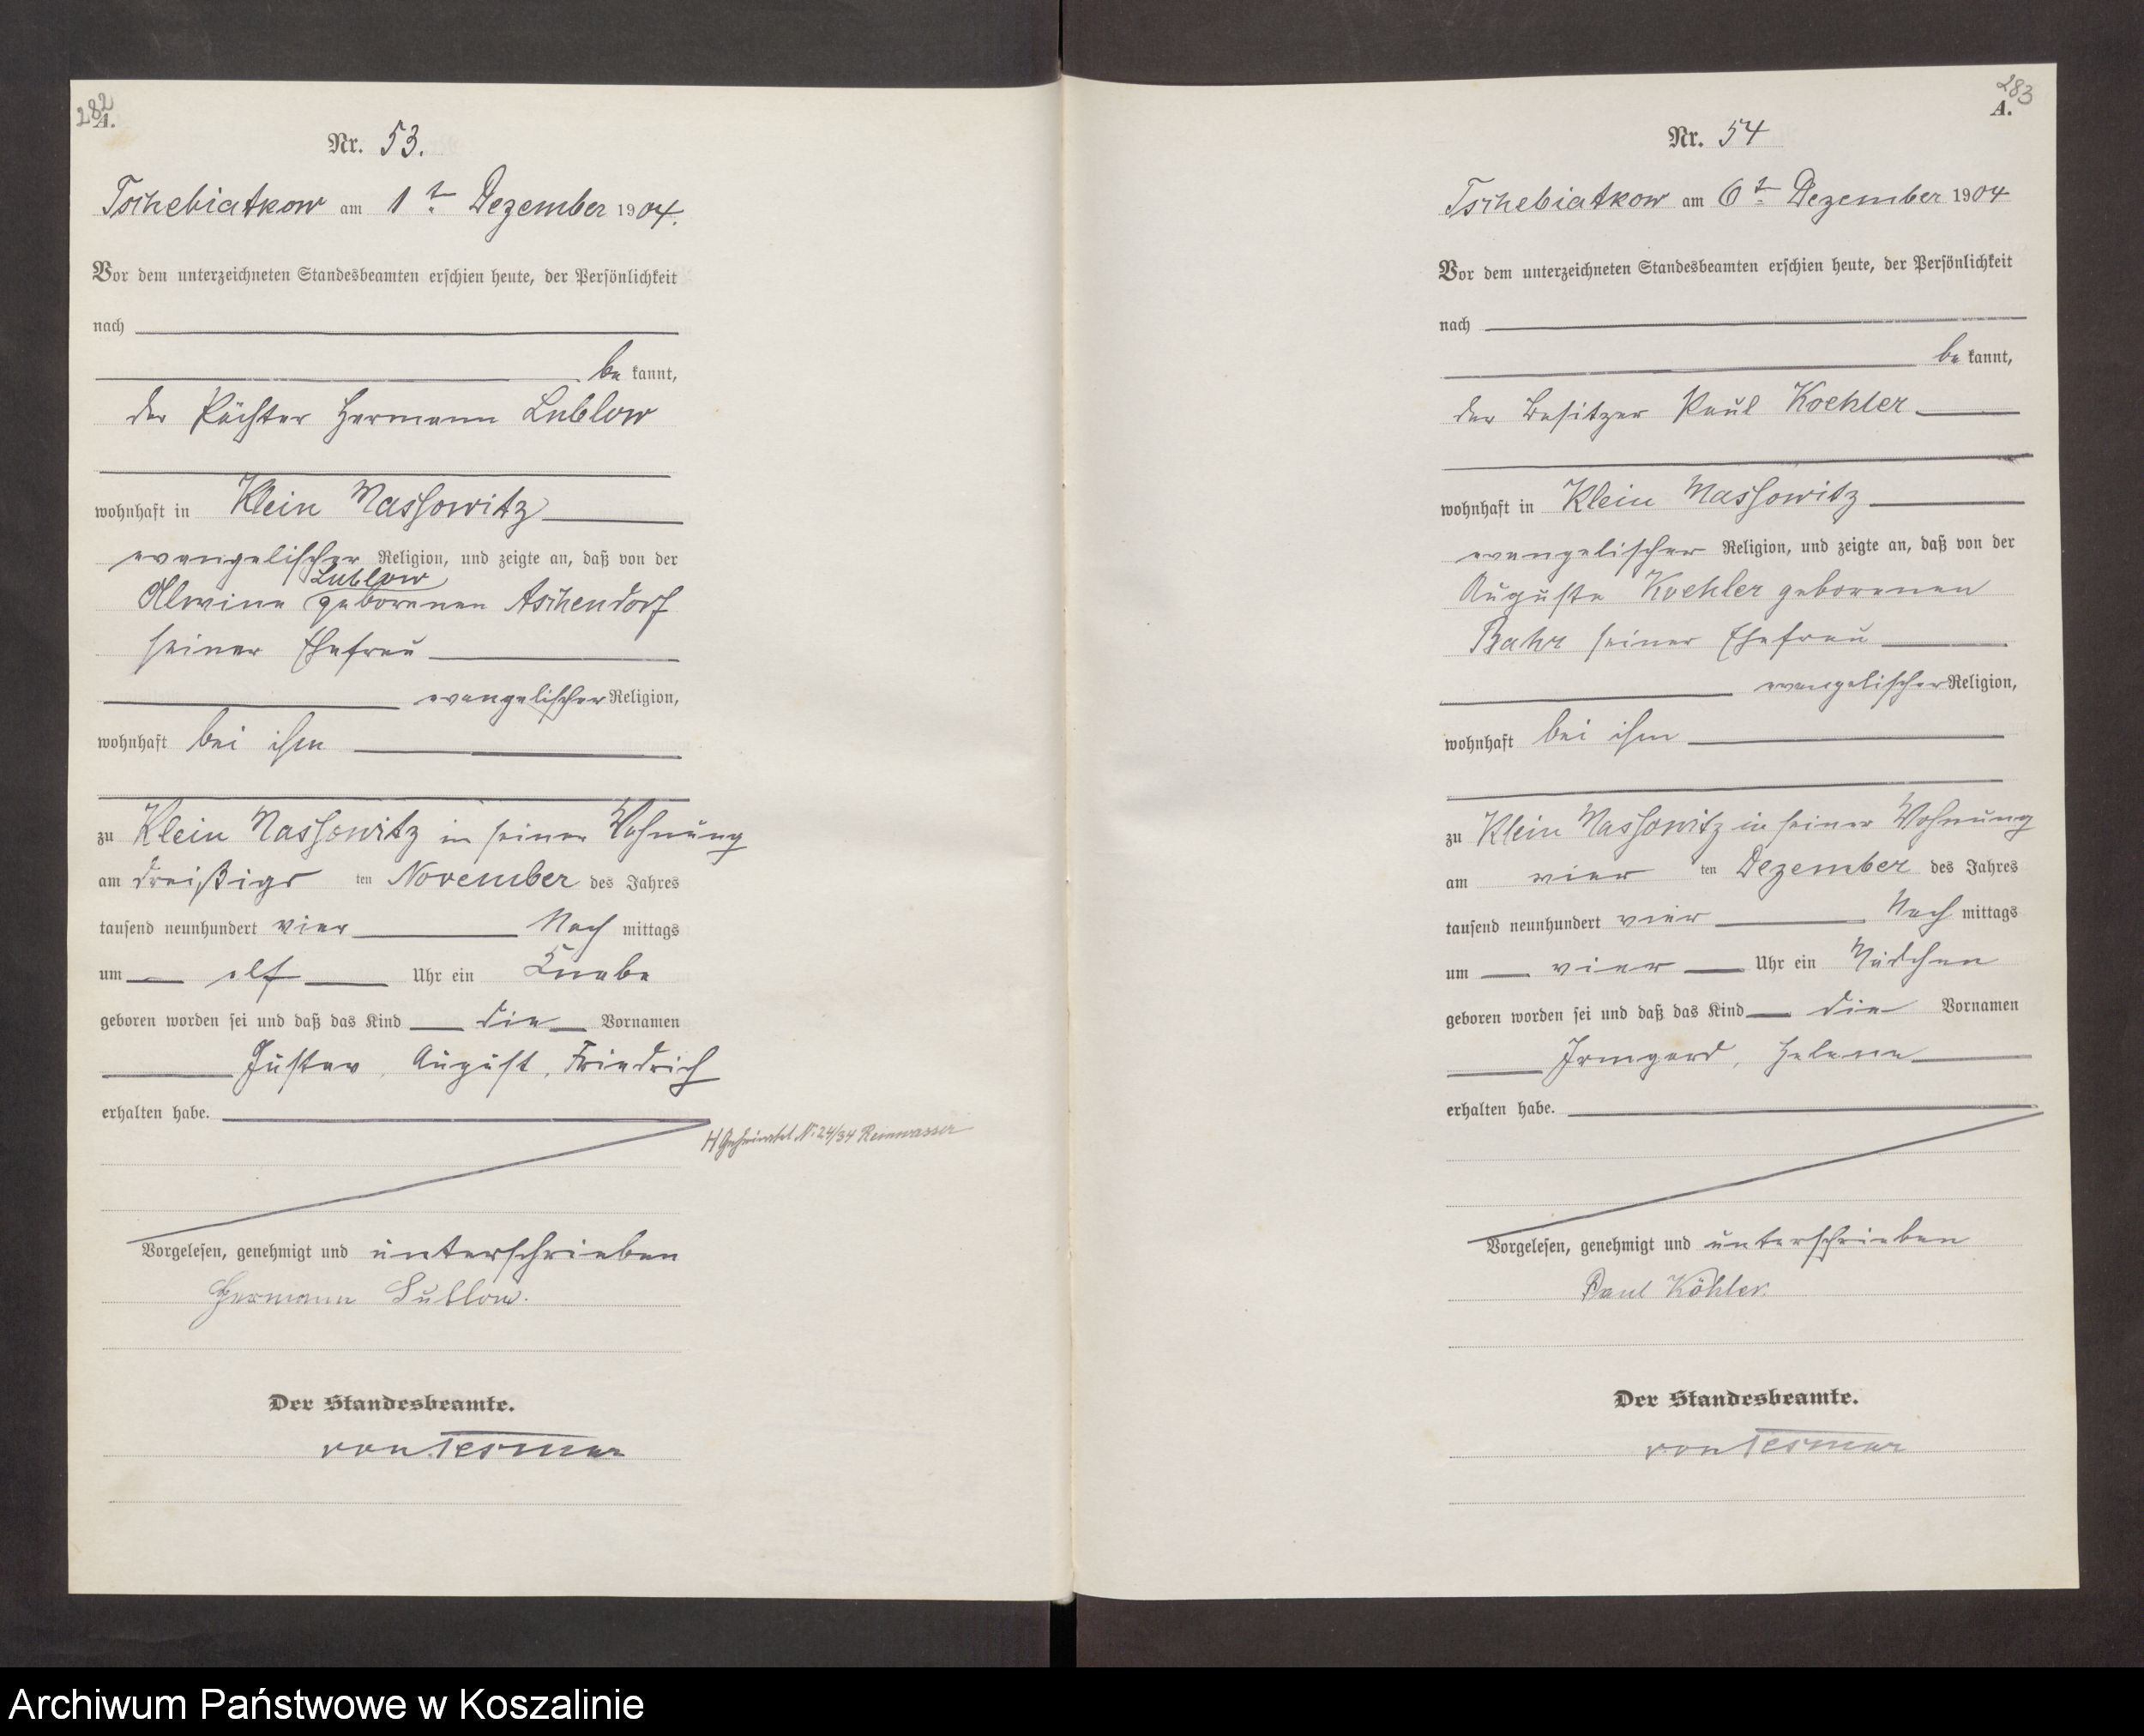 282
A.
Nr. 53.
Tschebiatkow am 1t. Dezember 1904.
Vor dem unterzeichneten Standesbeamten erschien heute, der Persönlichkeit
nach
be kannt,
der Pächter Hermann Lublow
wohnhaft in Klein Massowitz
evangelischer Religion, und zeigte an, daß von der
Lublow
Alwine geborenen Aschendorf
seiner Ehefrau
evangelischer Religion,
wohnhaft bei ihm
zu Klein Massowitz in seiner Wohnung
am dreißigs ten November des Jahres
tausend neunhundert vier Nach mittags
um elf Uhr ein Knabe
geboren worden sei und daß das Kind die Vornamen
Gustav, August, Friedrich
erhalten habe.
H Geheiratet Nr 24/34 Reinwasser
Vorgelesen, genehmigt und unterschrieben
Hermann Lublow.
Der Standesbeamte.
von Tesmar
283
A.
Nr. 54
Tschebiatkow am 6t. Dezember 1904
Vor dem unterzeichneten Standesbeamten erschien heute, der Persönlichkeit
nach
be kannt,
der Besitzer Paul Koehler
wohnhaft in Klein Massowitz
evangelischer Religion, und zeigte an, daß von der
Auguste Koehler geborenen
Bahr seiner Ehefrau
evangelischer Religion,
wohnhaft bei ihm
zu Klein Massowitz in seiner Wohnung
am vier ten Dezember des Jahres
tausend neunhundert vier Nach mittags
um vier Uhr ein Mädchen
geboren worden sei und daß das Kind die Vornamen
Irmgard, Helene
erhalten habe.
Vorgelesen, genehmigt und unterschrieben
Paul Köhler.
Der Standesbeamte.
von Tesmar
Archiwum Państwowe w Koszalinie